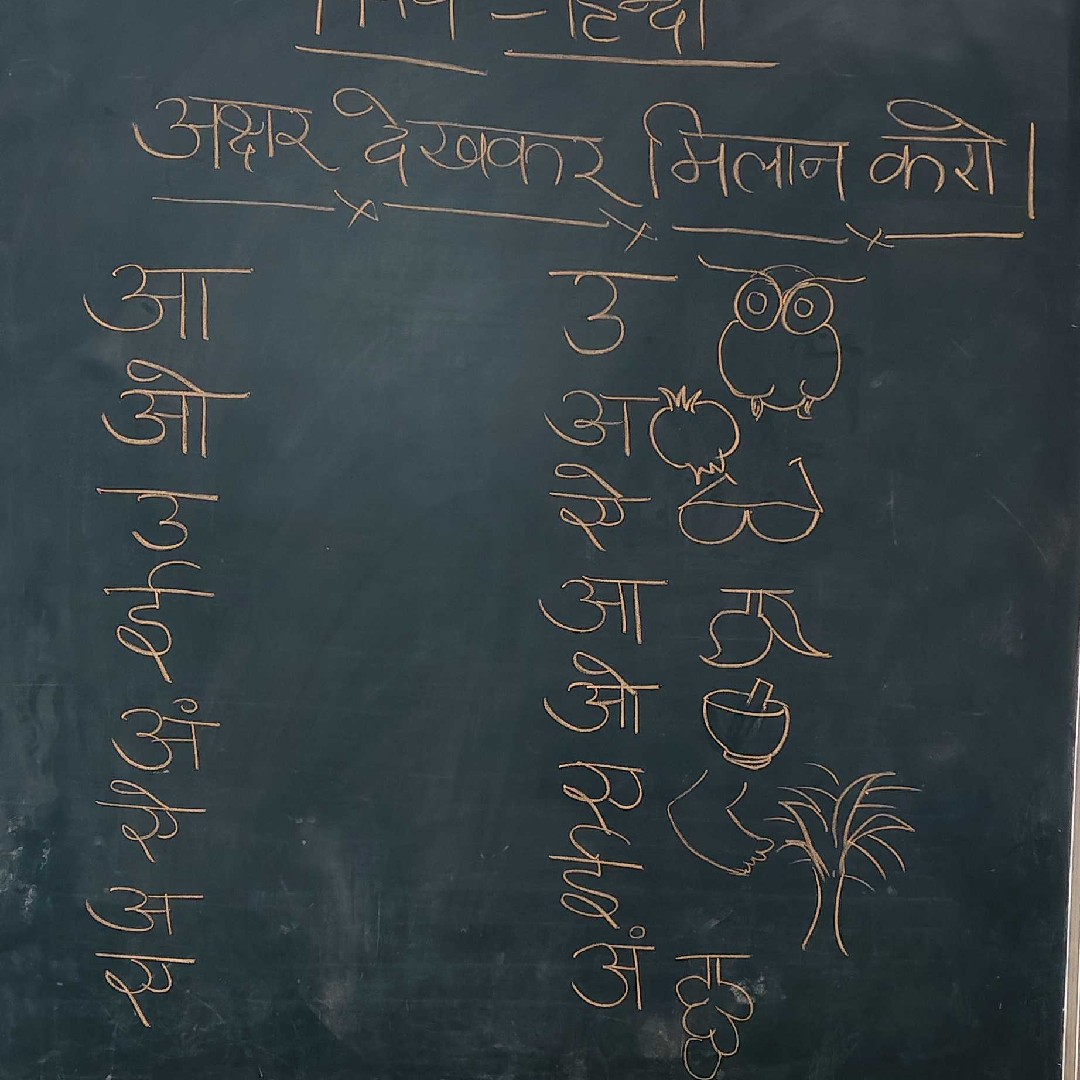 विषय – हिन्दी
अक्षर देखकर मिलान करो।
आ उ
ओ अ
उ ऐ
ई आ
अं ओ
ऐ ए
अ ई
ए अं